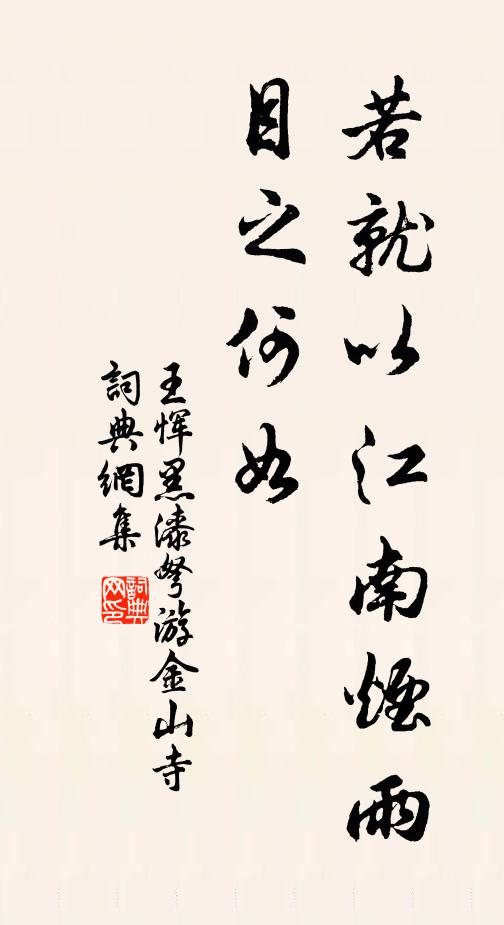 若就以江南煙雨
目之何如
王恽黑漆弩游金山寺
詞典網集
詞典網印